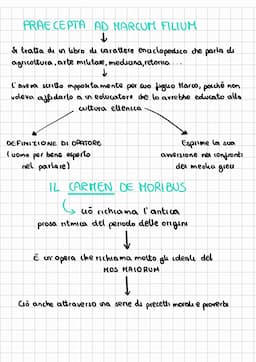 PRAECEPTA AD MARCUM FILIUM
Si tratta di un libro di carattere enciclopedico che parla di
agricoltura, arte militare, medicina, retorica ...
L'aveva scritto appositamente per suo figlio Marco, poiché non
voleva affidarlo a un educatore che lo avrebbe educato alla
cultura ellenica
DEFINIZIONE DI ORATORE
(uomo per bene esperto
nel parlare)
Esprime la sua
avversione nei confronti
dei medici greci
IL CARMEN DE MORIBUS
ciò richiama l'antica
prosa ritmica del periodo delle origini
È un'opera che richiama molto gli ideali del
MOS MAIORUM
Ciò anche attraverso una serie di precetti morali e proverbi